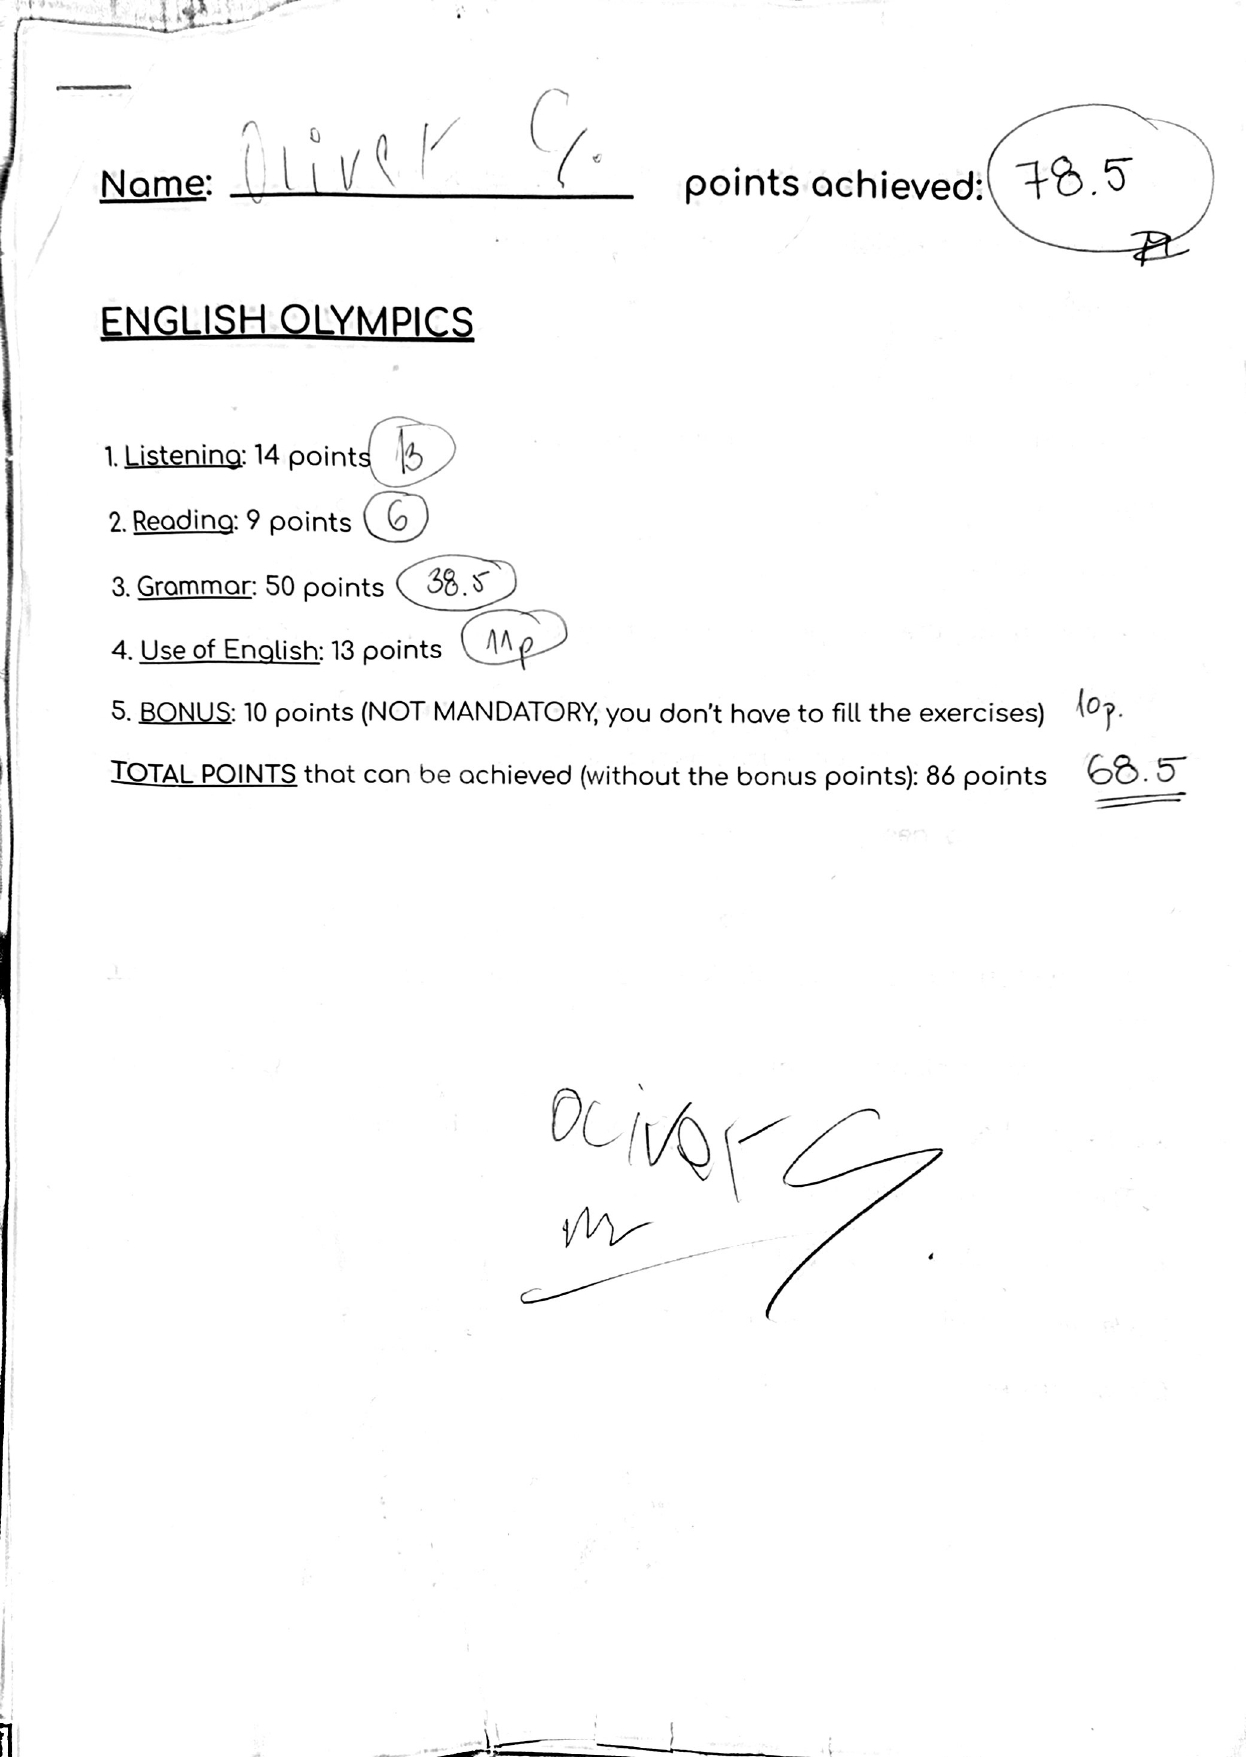 Name: Oliver G. points achieved: 78.5
ENGLISH OLYMPICS
1. Listening: 14 points 13
2. Reading: 9 points 6
3. Grammar: 50 points 38.5
4. Use of English: 13 points 11p
5. BONUS: 10 points (NOT MANDATORY, you don't have to fill the exercises) 10p.
TOTAL POINTS that can be achieved (without the bonus points): 86 points 68.5
Oliver G.